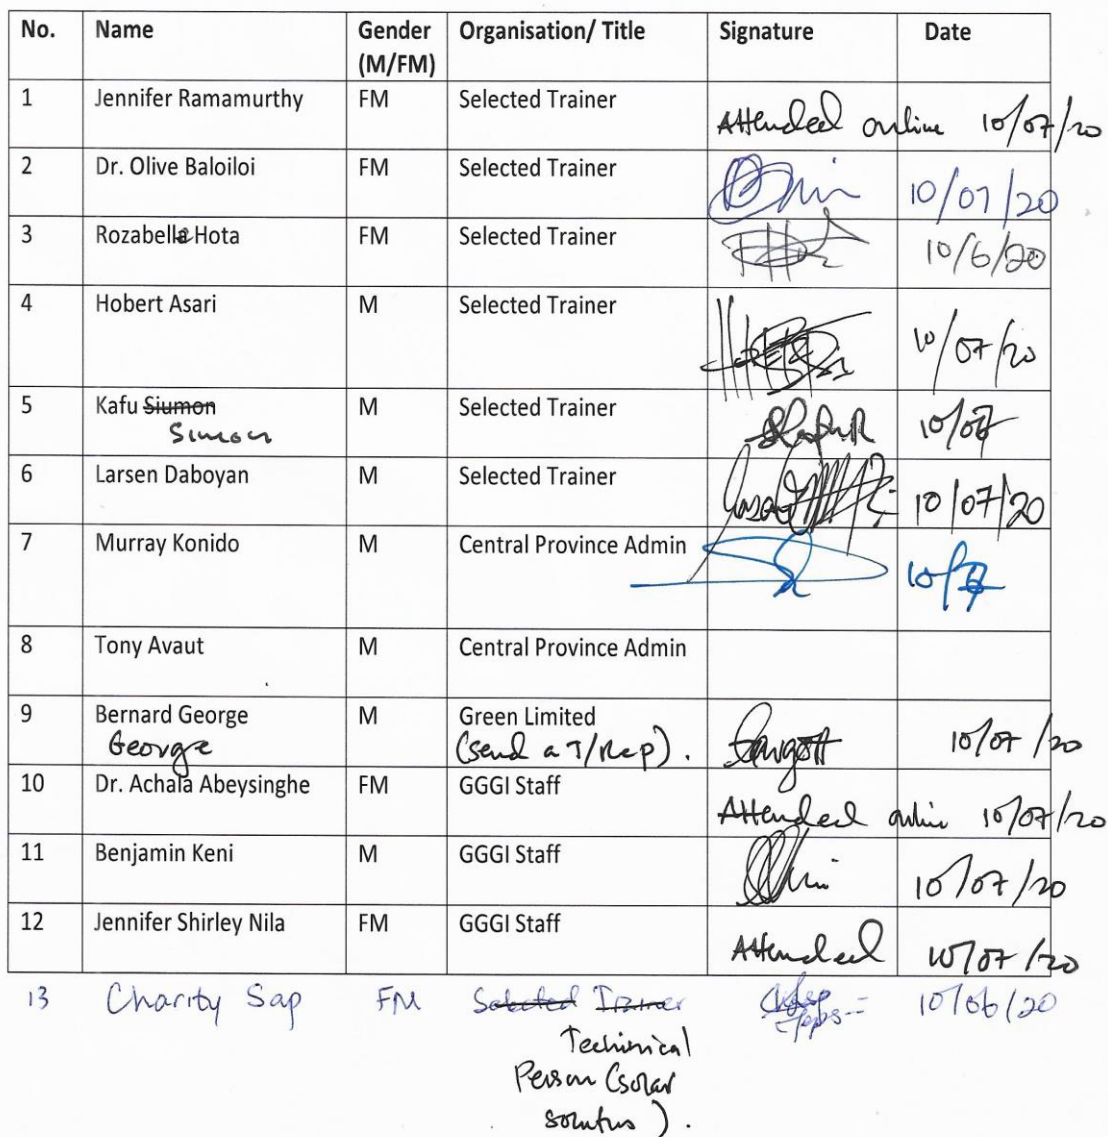 No. Name Gender (M/FM) Organisation/ Title Signature Date
1 Jennifer Ramamurthy FM Selected Trainer Attended online 10/07/20
2 Dr. Olive Baloiloi FM Selected Trainer 10/07/20
3 Rozabella Hota FM Selected Trainer 10/6/20
4 Hobert Asari M Selected Trainer 10/07/20
5 Kafu Siumon M Selected Trainer
Simon
6 Larsen Daboyan M Selected Trainer 10/07/20
7 Murray Konido M Central Province Admin
8 Tony Avaut M Central Province Admin
9 Bernard George M Green Limited 10/07/20
George (send a T/Rep).
10 Dr. Achala Abeysinghe FM GGGI Staff Attended online 10/07/20
11 Benjamin Keni M GGGI Staff 10/07/20
12 Jennifer Shirley Nila FM GGGI Staff Attended 10/07/20
13 Charity Sap FM Selected Trainer 10/06/20
Techinical
Person (solar
solutns).